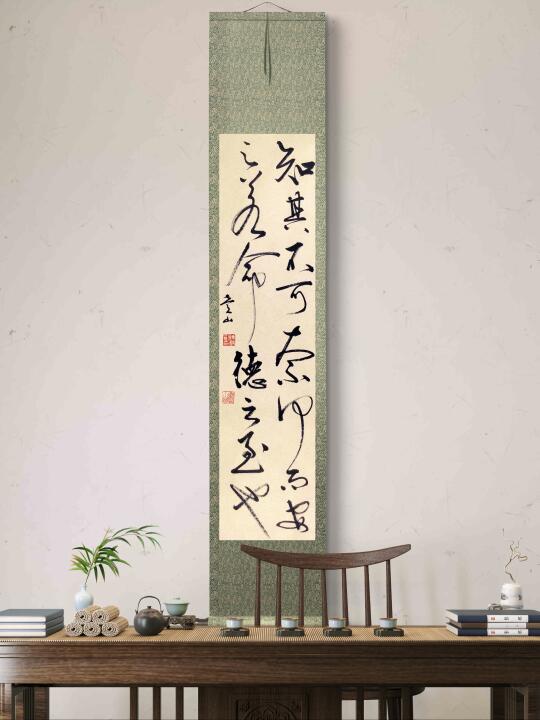 知其不可奈何而安
之若命德之至也